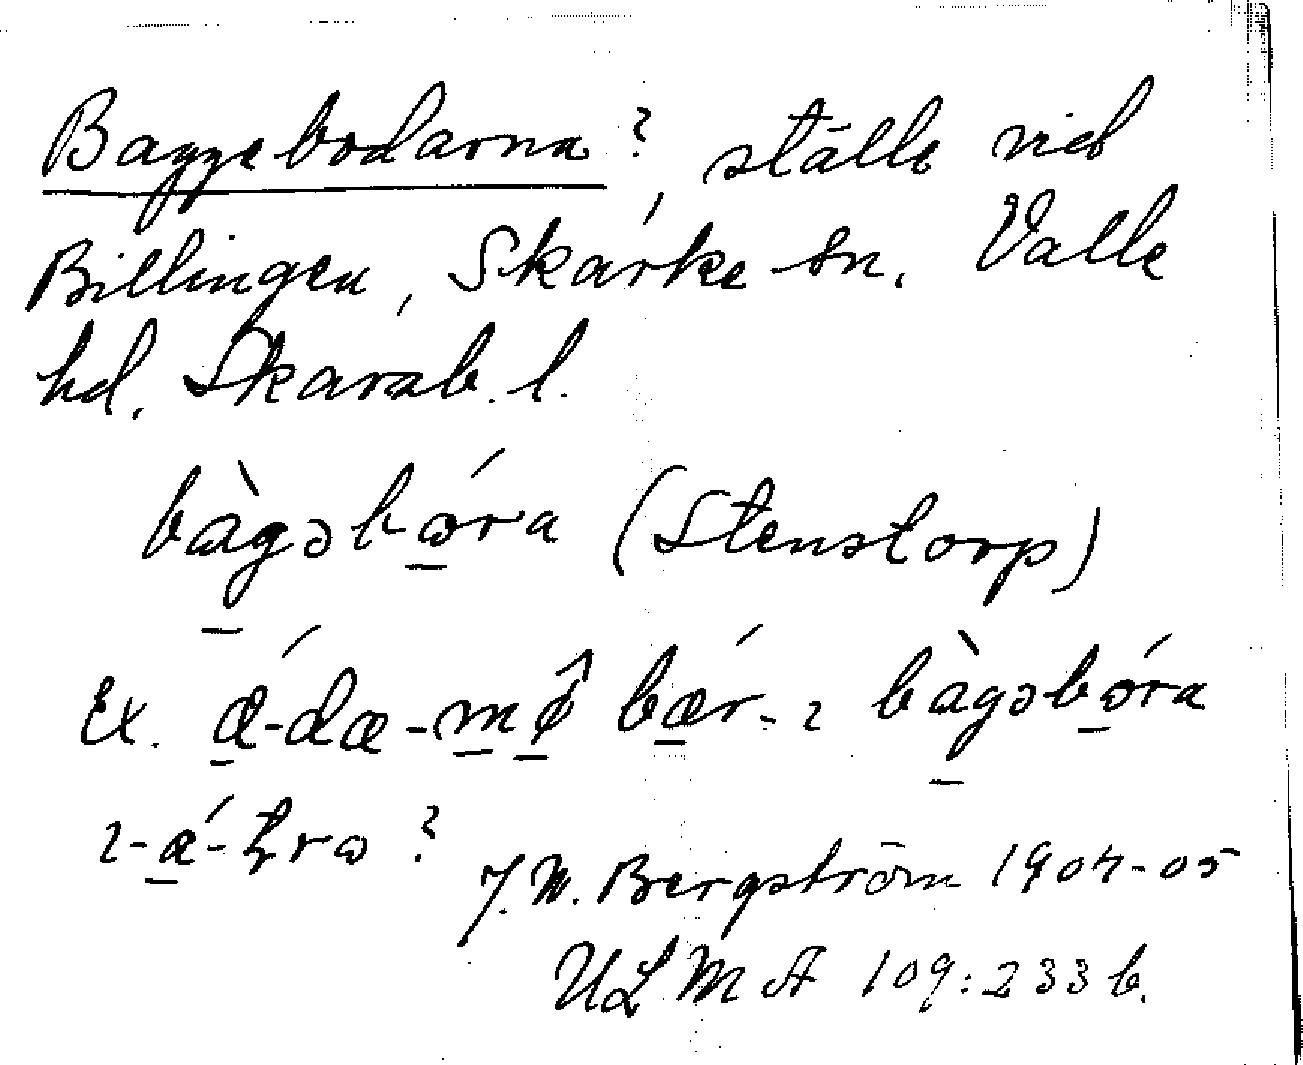 Baggebodarna?, ställe vid
Billingen, Skärke sn. Valle
hd. Skarab. l.
bàgəbǿra (Stenstorp)
Ex. ǽ-dæ-mô bǽr-ɩ bàgəbǿra
J. N. Bergström 1904-05
ULMA 109:233 b.